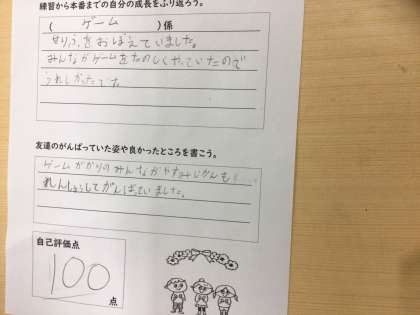 練習から本番までの自分の成長をふり返ろう。
( ゲーム )係
せりふをおぼえていました。
みんながゲームをたのしくやっていたので
うれしかったです
友達のがんばっていた姿や良かったところを書こう。
ゲームがかりのみんながやすみじかんも
れんしゅうしてがんばっていました。
自己評価点
100点